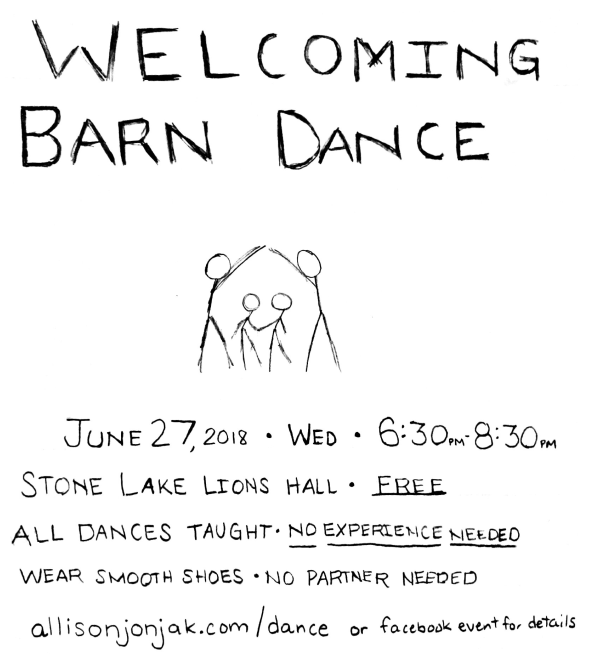 WELCOMING
BARN DANCE
JUNE 27, 2018 • WED • 6:30PM-8:30PM
STONE LAKE LIONS HALL • FREE
ALL DANCES TAUGHT • NO EXPERIENCE NEEDED
WEAR SMOOTH SHOES • NO PARTNER NEEDED
allisonjonjak.com/dance or facebook event for details